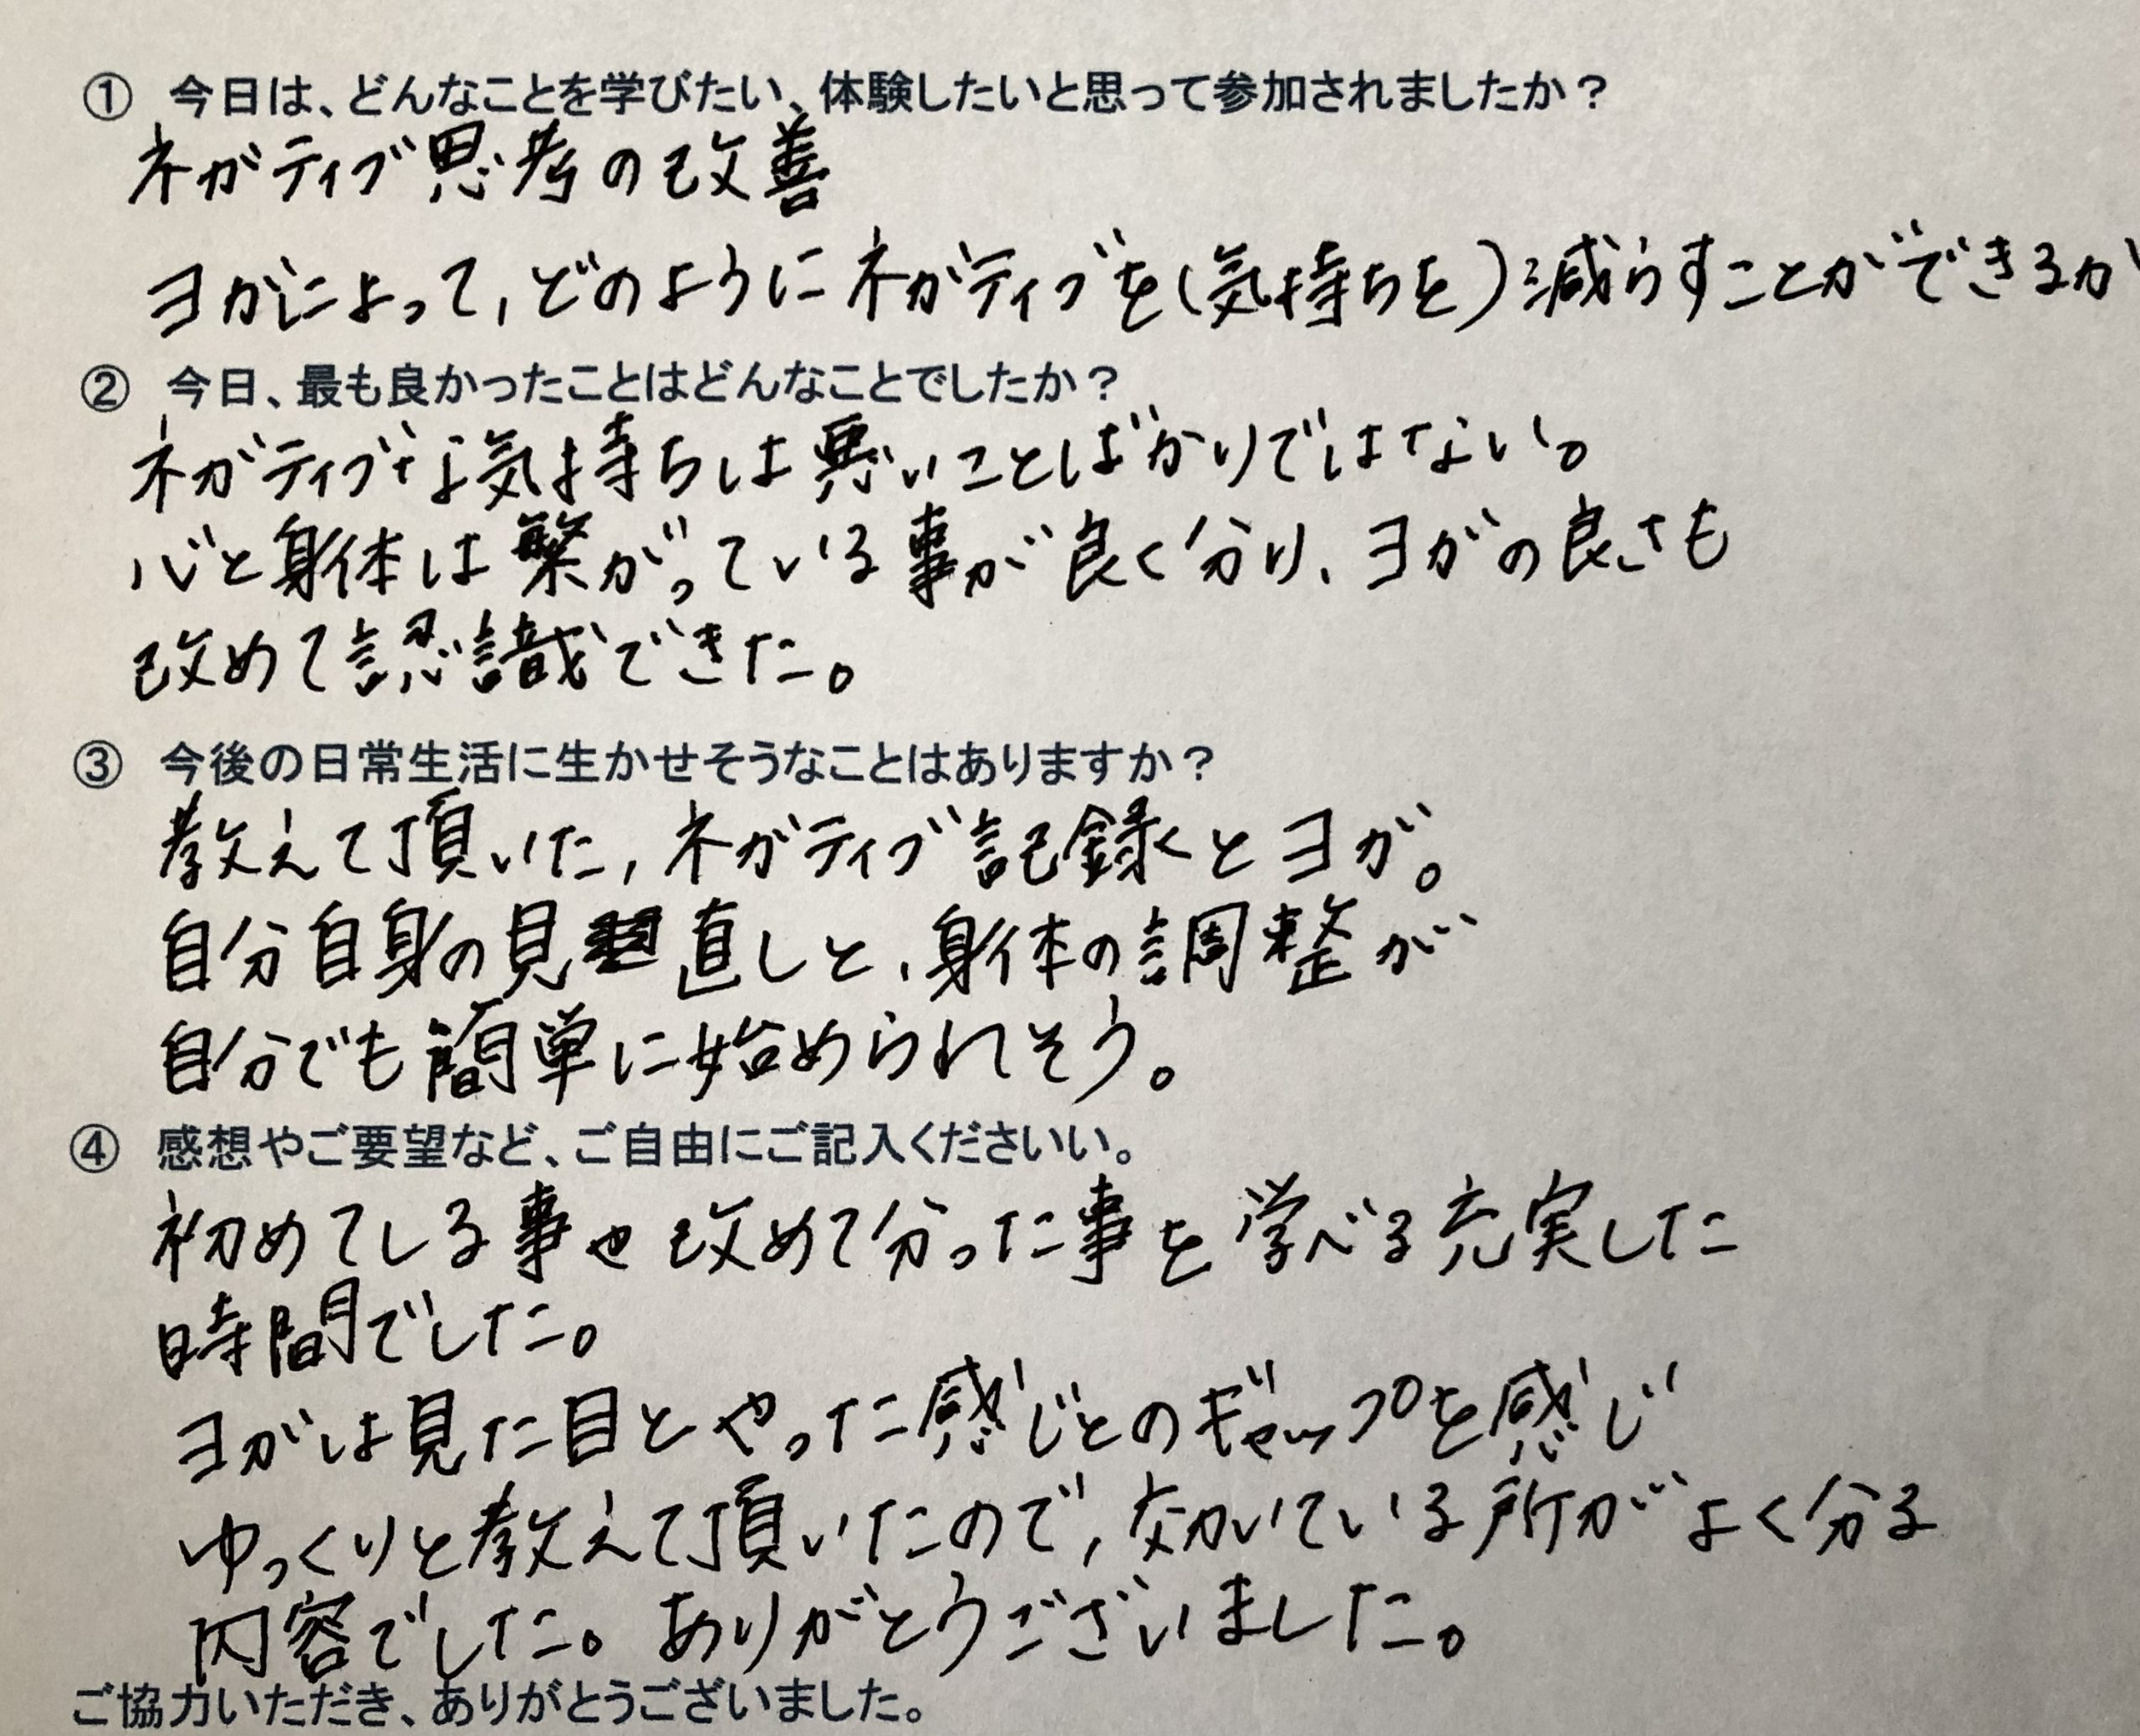 ① 今日は、どんなことを学びたい、体験したいと思って参加されましたか？
ネガティブ思考の改善
ヨガによって,どのようにネガティブを(気持ちを)減らすことができるか
② 今日、最も良かったことはどんなことでしたか？
ネガティブな気持ちは悪いことばかりではない。
心と身体は繋がっている事が良く分り、ヨガの良さも
改めて認識できた。
③ 今後の日常生活に生かせそうなことはありますか？
教えて頂いた,ネガティブ記録とヨガ。
自分自身の見直しと、身体の調整が
自分でも簡単に始められそう。
④ 感想やご要望など、ご自由にご記入くださいい。
初めてしる事や改めて分った事を学べる充実した
時間でした。
ヨガは見た目とやった感じとのギャップを感じ
ゆっくりと教えて頂いたので,効いている所がよく分る
内容でした。ありがとうございました。
ご協力いただき、ありがとうございました。